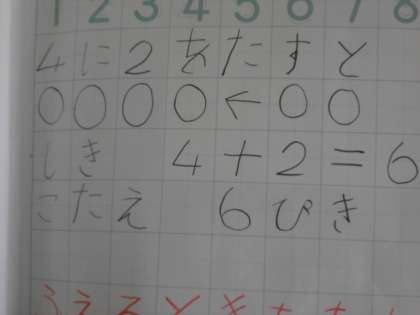 1 2 3 4 5 6 7 8
4に2をたすと
○○○○←○○
しき 4+2=6
こたえ 6ぴき